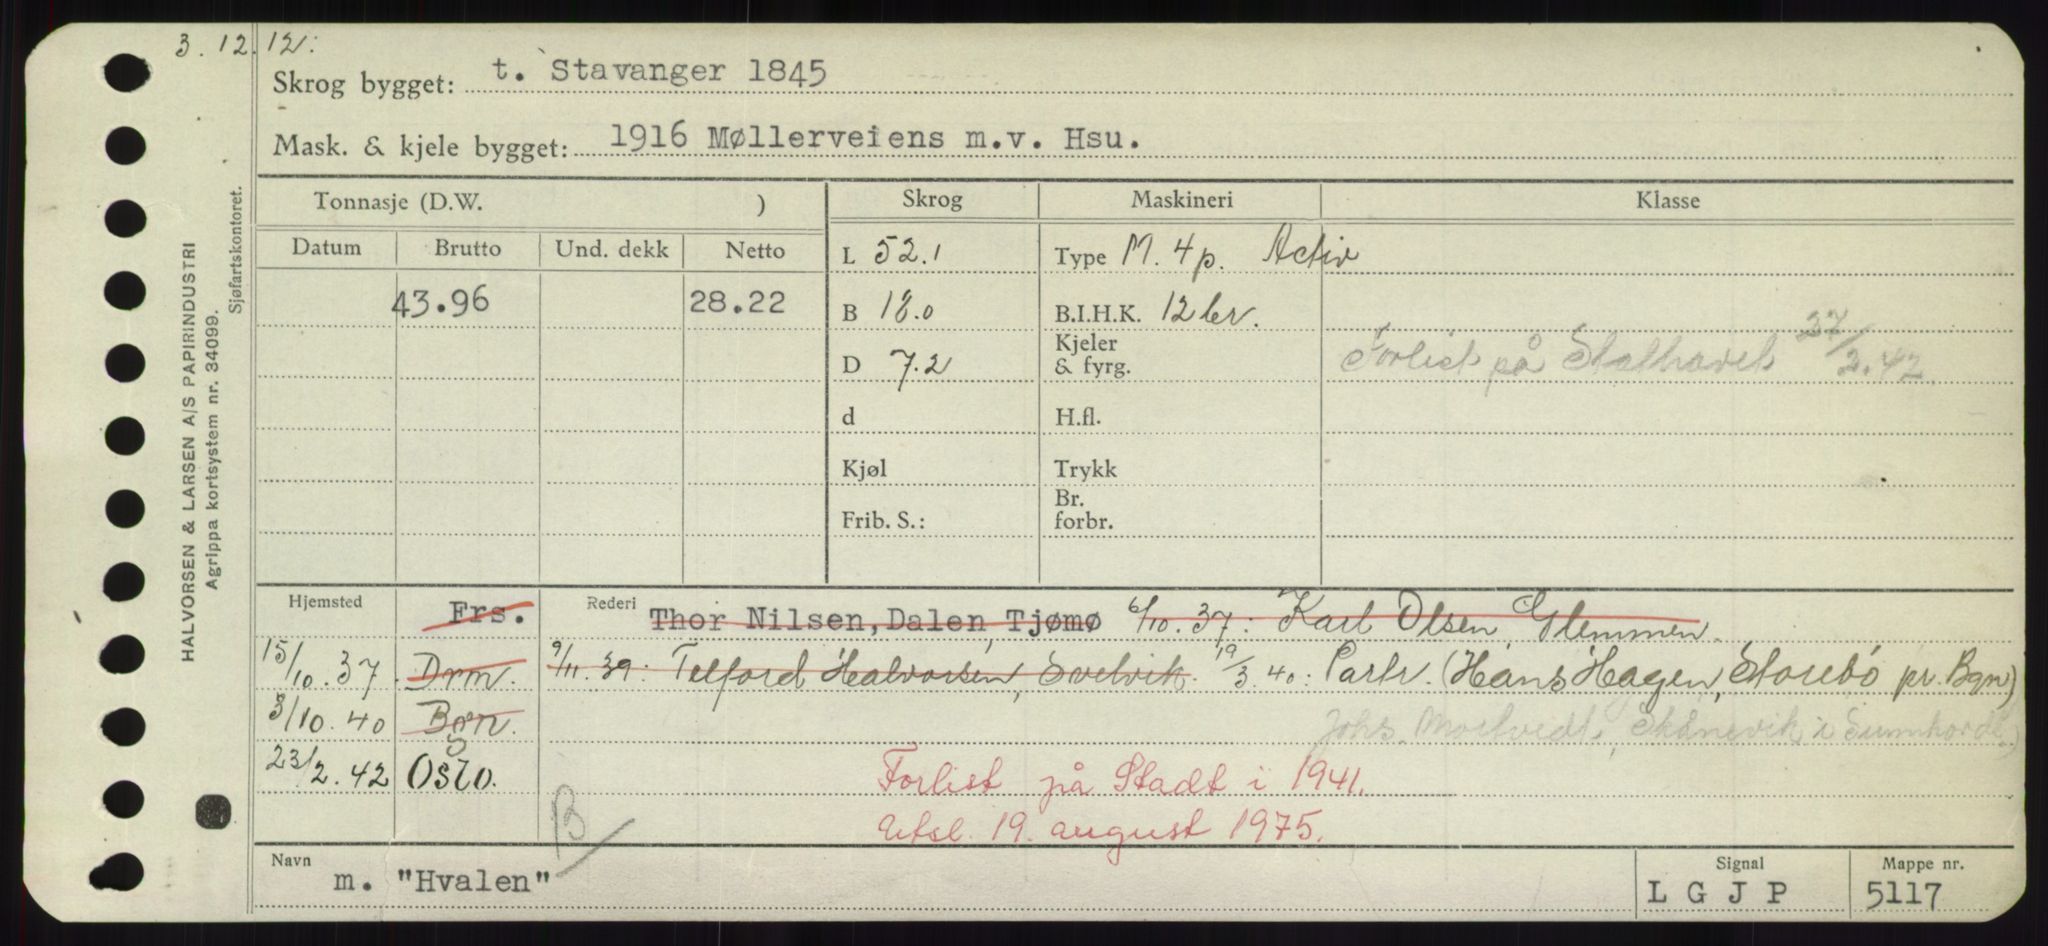 3.12.12:
Skrog bygget: t. Stavanger 1845
Mask. & kjele bygget: 1916 Møllerveiens m.v. Hsu.
HALVORSEN & LARSEN A/S PAPIRINDUSTRI
Agrippa kortsystem nr. 34099.
Sjøfartskontoret.
Tonnasje (D.W. ) Skrog Maskineri Klasse
Datum Brutto Und. dekk Netto L 52.1 Type M. 4 p. Activ
43.96 28.22 B 18.0 B.I.H.K. 12 br.
D 7.2 Kjeler & fyrg. Forlist på Stathavet 27/2.42.
d H.fl.
Kjøl Trykk
Frib. S.: Br. forbr.
Hjemsted Frs. Rederi Thor Nilsen, Dalen, Tjømø 6/10.37: Karl Olsen, Glemmen.
15/10.37 Drm. 9/11.39: Telford Halvorsen, Svelvik. 19/3.40: Partr. (Hans Hagen, Storebö pr. Bgn)
3/10.40 Bgn. Johs. Mortvedt, Skånevik i Sunnhordl.)
23/2.42 Oslo. Forlist på Stadt i 1941.
B Utsl. 19. august 1975.
Navn m. "Hvalen" Signal L G J P Mappe nr. 5117